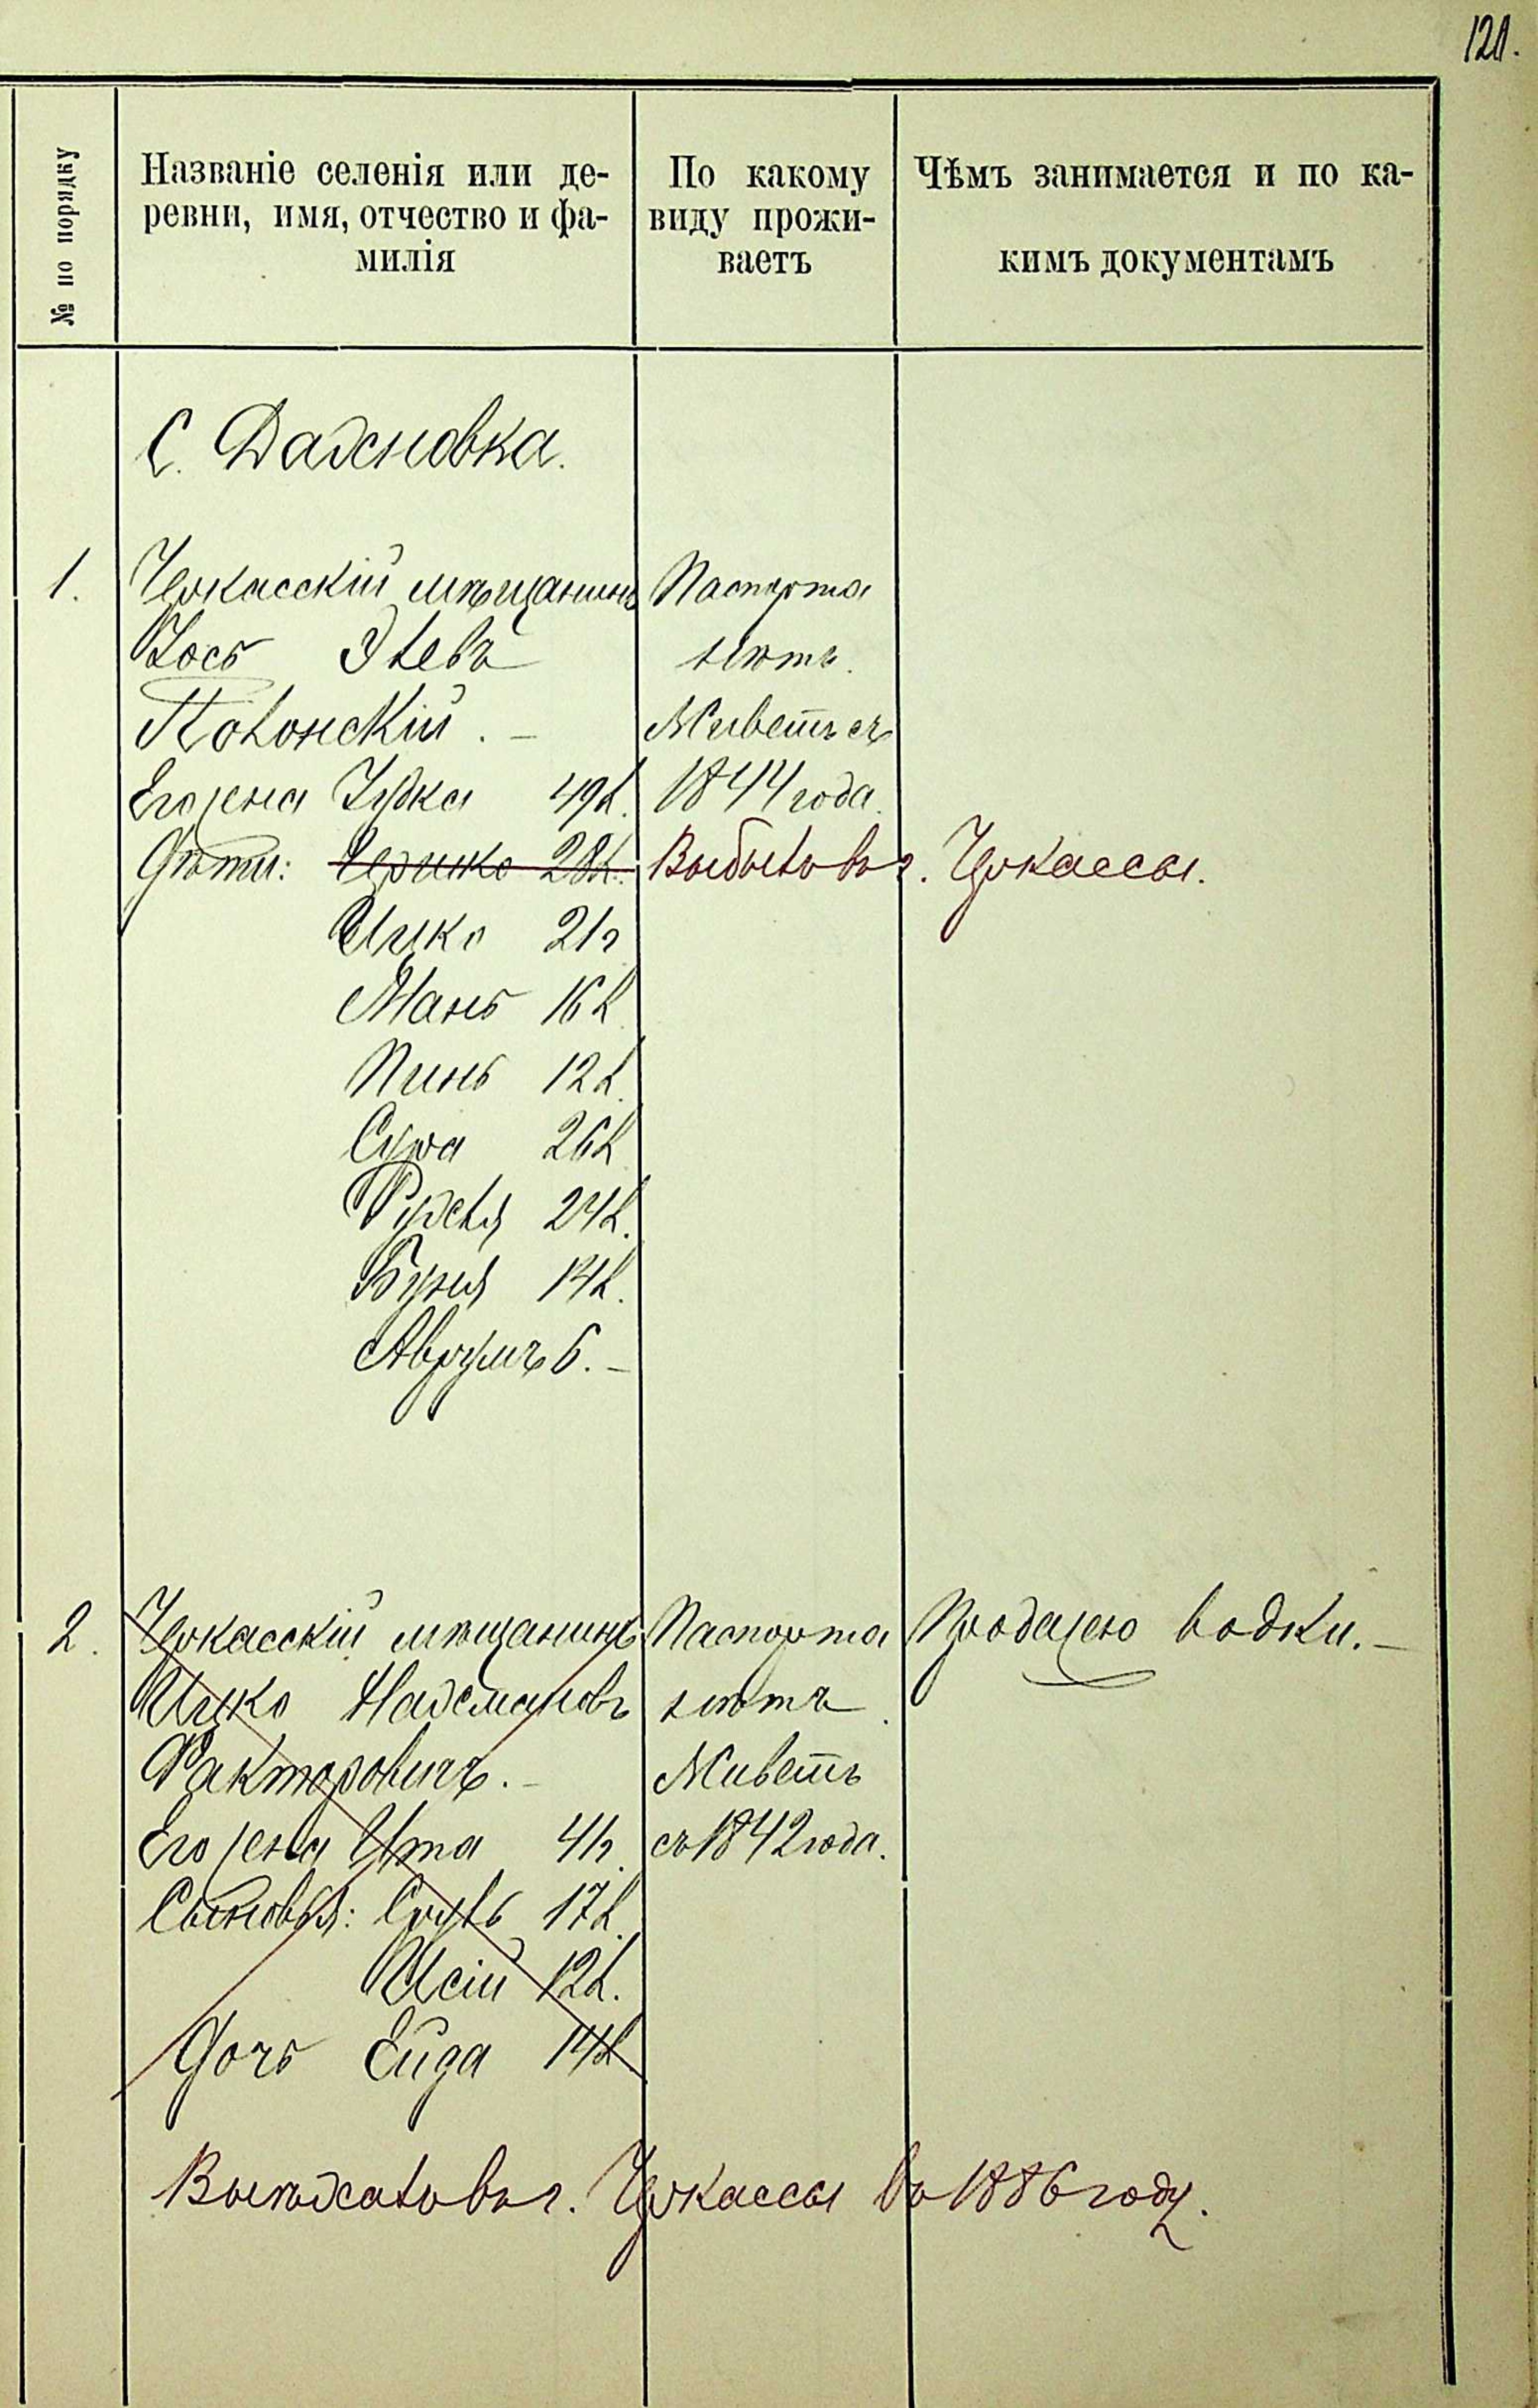 121.
№ по порядку
Названіе селенія или де-
ревни, имя, отчество и фа-
милія
По какому
виду прожи-
ваетъ
Чѣмъ занимается и по ка-
кимъ документамъ
С. Дахновка.
1.
Черкасскій мѣщанинъ
Іось Элевъ
Полонскій. -
Его жена Худка 49 л.
Дѣти: 28 л.
Ицко 21 г
Мань 16 л
Пинь 12 л.
Сура 26 л
Рухля 24 л.
Буня 14 л.
Аврумъ 6. -
Паспорта
нѣтъ.
Живетъ съ
1844 года.
Выбылъ въ г. Черкассы.
2.
Черкасскій мѣщанинъ
Ицко Нахмановъ
Факторовичъ. -
Его жена Ита 41 г.
Сыновья: Сруль 17 л.
Исій 12 л.
Дочь Ейда 14 л
Паспорта
нѣтъ.
Живетъ
съ 1842 года.
Продажею водки. -
Выѣхалъ въ г. Черкассы въ 1886 году.